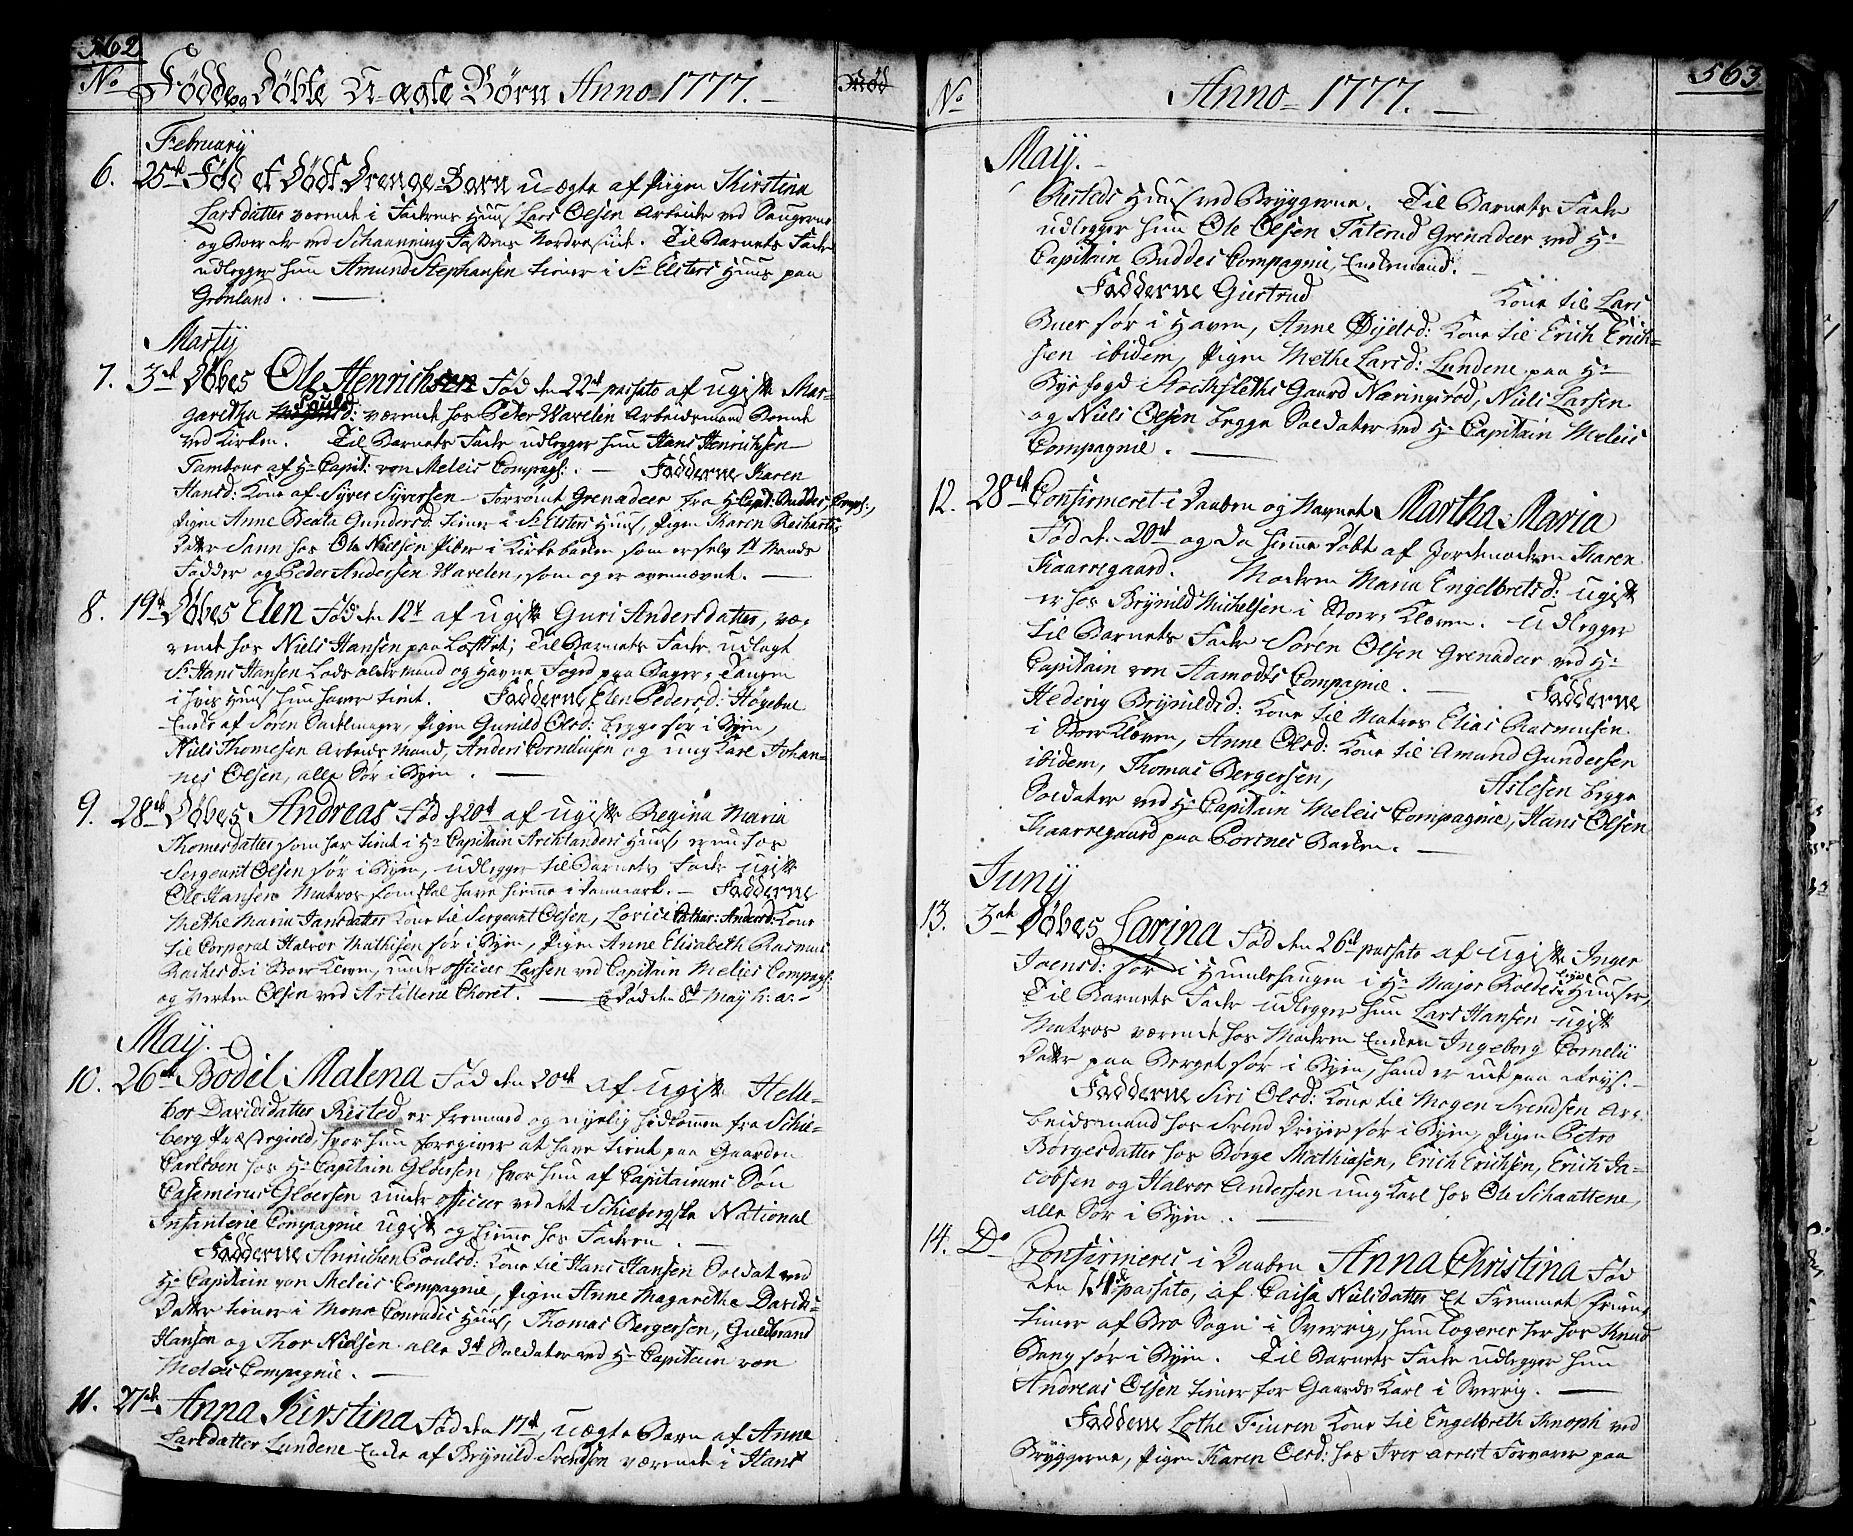 562
No Fødde og Døbte U-ægte Børn Anno 1777.
Februarij
6. 25de Fød et Dødt Drenge-Barn u-ægte af Pigen Kirstina
Larsdatter værende i Faderens Huus Lars Olsen Arbeider ved Saugerne
og Boer der ved Schaanning Fossens Nordre Side. Til Barnets Fader
udlegger hun Amund Stephansen tiener i Sr Elsters Huus paa
Grønland.
Martij
7. 3de Døbes Ole Henrichsen Fød den 22de passato af ugift Mar-
garetha Poulsd: værende hos Peter Wavelin Arbeidsmand Boende
ved Kirken. Til Barnets Fader udlegger hun Hans Henrichsen
Tambour af Hr Capit: von Meleis Compagn:. Fadderne Karen
Hansd: Kone af Syver Syversen Forromt Grenadeer fra Hr Capt: Buddes Comp:,
Pigen Anne Beate Gundersd: tiener i Sr Elsters Huus, Pigen Karen Zacharias
Datter Sann hos Ole Nielsen Piber i Kirke bachen som er selv 1st Mands
Fadder og Peder Andersen Wavelen, som og er ovennævnt.
8. 19de Døbes Elen Fød den 12te af ugift Guri Andersdatter, væ-
rende hos Niels Hansen paa Løkket; Til Barnets Fader udlagt
Sr Hans Hansen Lods oldermand og Havne Foged paa Bager-Tangen
i hvis Huus hun haver tient. Fadderne Elen Pedersd: Høgebul
Enke af Søren Sadelmager, Pigen Gunild Olsd: begge før i Byen,
Niels Thomesen Arbeids Mand, Anders Corneliusen og ung Karl Johan-
nes Olsen, alle Før i Byen.
9. 28de Døbes Andreas Fød d 20de af ugift Regina Maria
Thomesdatter som har tient i Hr Capitain Archlanders Huus, er nu hos
Sergeant Olsen før i Byen, udlegger til Barnets Fader ugift
Ole Hansen Matros som skal have hiemme i Danmark. Fadderne
Methe Maria Jansdatter Kone til Sergeant Olsen, Lovice Cathar: Andersd: Kone
til Corporal Halvor Mathisen før i Byen, Pigen Anne Elisabeth Rasmus
Bachesd: i Stoer Kleven, under officeer Larsen ved Capitain Meleis Compagn:
og Verten Olsen ved Artillerie Choret. Død den 8de May h: a:
May.
10. 26de Bodil Malena Fød den 20de af ugift Helle-
bor Davidsdatter Risted er fremmed og nyelig hidkommen fra Schie-
berg Præstegield, hvor hun foregiver at have tient paa Gaarden
Carlsven hos Hr Capitain Gløersen, hvor hun af Capitainens Søn
Casemirus Gløersen under officeer ved det Schiebergske National
Infanterie Compagnie ugift og hiemme hos Faderen.
Fadderne Annichen Poulsd: Kone til Hans Hansen Soldat ved
Hr Capitain von Meleis Compagnie, Pigen Anne Magarethe Davids-
Datter tiener i Mons Conradis Huus, Thomas Bergersen, Guldbrand
Hansen og Thor Nielsen alle 3de Soldater ved Hr Capitain von
Meleis Compagnie.
11. 27de Anna Kirstina Fød den 17de, uægte Barn af Anne
Larsdatter Lundene Enke af Brynild Svendsen værende i Hans
563.
No Anno 1777.
May.
Risteds Huus ved Bryggerne. Til Barnets Fader
udlegger hun Ole Olsen Taterud Grenadeer ved Hr
Capitain Buddes Compagnie, Enkemand.
Fadderne Giertrud Kone til Lars
Buer før i Haven, Anne Øyelsd: Kone til Erich Erich-
sen ibidem, Pigen Methe Larsd: Lundene paa Hr
Byefogd Stochfleths Gaard Næringsrød, Niels Larsen
og Niels Olsen begge Soldater ved Hr Capitain Meleis
Compagnie.
12. 28de Confirmeret i Daaben og Navnet Martha Maria
Fød den 20de og da hiemme døbt af Jordemoderen Karen
Kaarregaard. Moderen Maria Engelbretsd: ugift
er hos Brynild Michelsen i Stoer-Kleven. Udlegger
til Barnets Fader Søren Olsen Grenadeer ved Hr
Capitain von Aamodts Compagnie. Fadderne
Hedevig Brynildsd: Kone til Matros Elias Rasmusen
i Stoer Kleven, Anne Olsd: Kone til Amund Gundersen
ibidem, Thomas Bergersen, Aslesen begge
Soldater ved Hr Capitain Meleis Compagnie, Hans Olsen
Kaarregaard paa Porsnes Bachen.
Junij
13. 3de Døbes Larina Fød den 26de passato af ugift Inger
Joensd: før i Humlehaugen i Hr Major Roldes Huuser,
Til Barnets Fader udlegger hun Lars Hansen ugift
Matros værende hos Moderen Enken Ingeborg Cornelii
Datter paa Berget før i Byen, hand er ude paa Reys.
Fadderne Siri Olsd: Kone til Mogen Svendsen Ar-
beidsmand hos Svend Dreyer før i Byen, Pigen Petro
Børgesdatter hos Børge Mathiasen, Erich Erichsen, Erich Ja-
cobsen og Halvor Andersen ung Karl hos Ole Schaattene,
alle Før i Byen.
14. Do Confirmeres i Daaben Anna Christina Fød
den 14de passato, af Caisa Nielsdatter Et Fremmet Fruent
timer af Bro Sogn i Sverrig, hun logerer her hos Knud
Bang før i Byen. Til Barnets Fader udlegger hun
Andreas Olsen tiener for Gaards Karl i Sverrig.
Fadderne Lothe Finren Kone til Engelbreth Knoph ved
Bryggerne, Pigen Karen Elesd: hos Iver arrest Forvarer paa